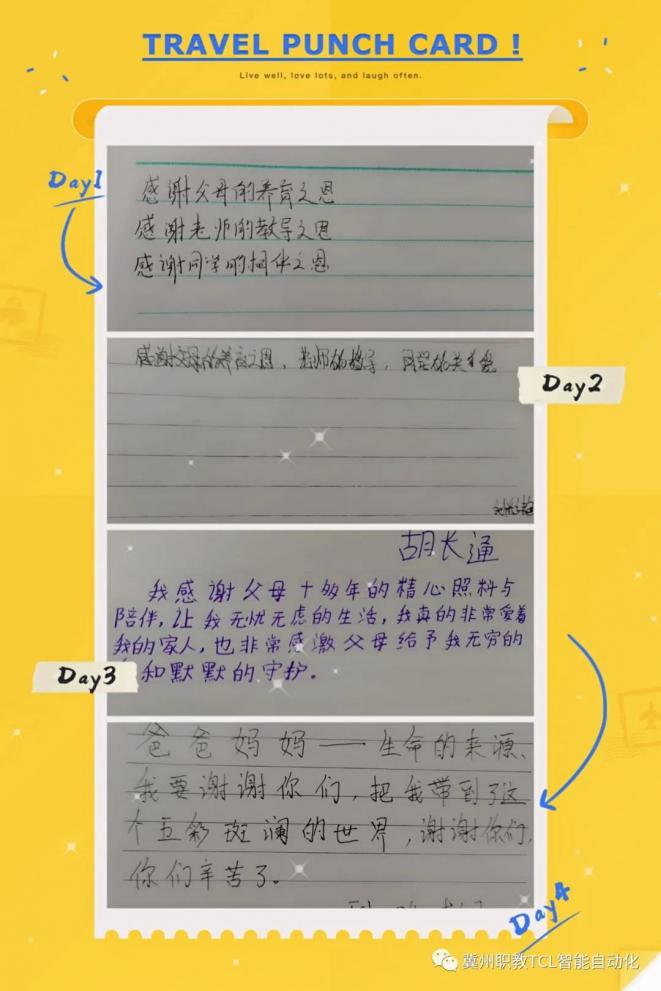 TRAVEL PUNCH CARD !
Live well, love lots, and laugh often.
Day1
感谢父母的养育之恩
感谢老师的教导之恩
感谢同学的相伴之恩
感谢父母的养育之恩，老师的教导，同学的关爱
Day2
胡长通
我感谢父母十多年的精心照料与
陪伴，让我无忧无虑的生活，我真的非常爱着
我的家人，也非常感激父母给予我无穷的
和默默的守护。
Day3
爸爸妈妈——生命的来源、
我要谢谢你们，把我带到了这
个五彩斑澜的世界，谢谢你们，
你们辛苦了。
Day4
冀州职教TCL智能自动化